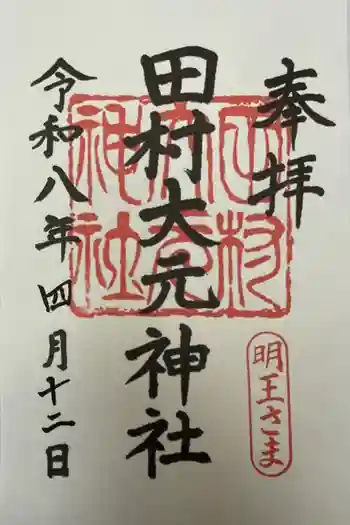 奉拝
明王さま
田村大元神社
田村大元神社
令和八年四月十二日